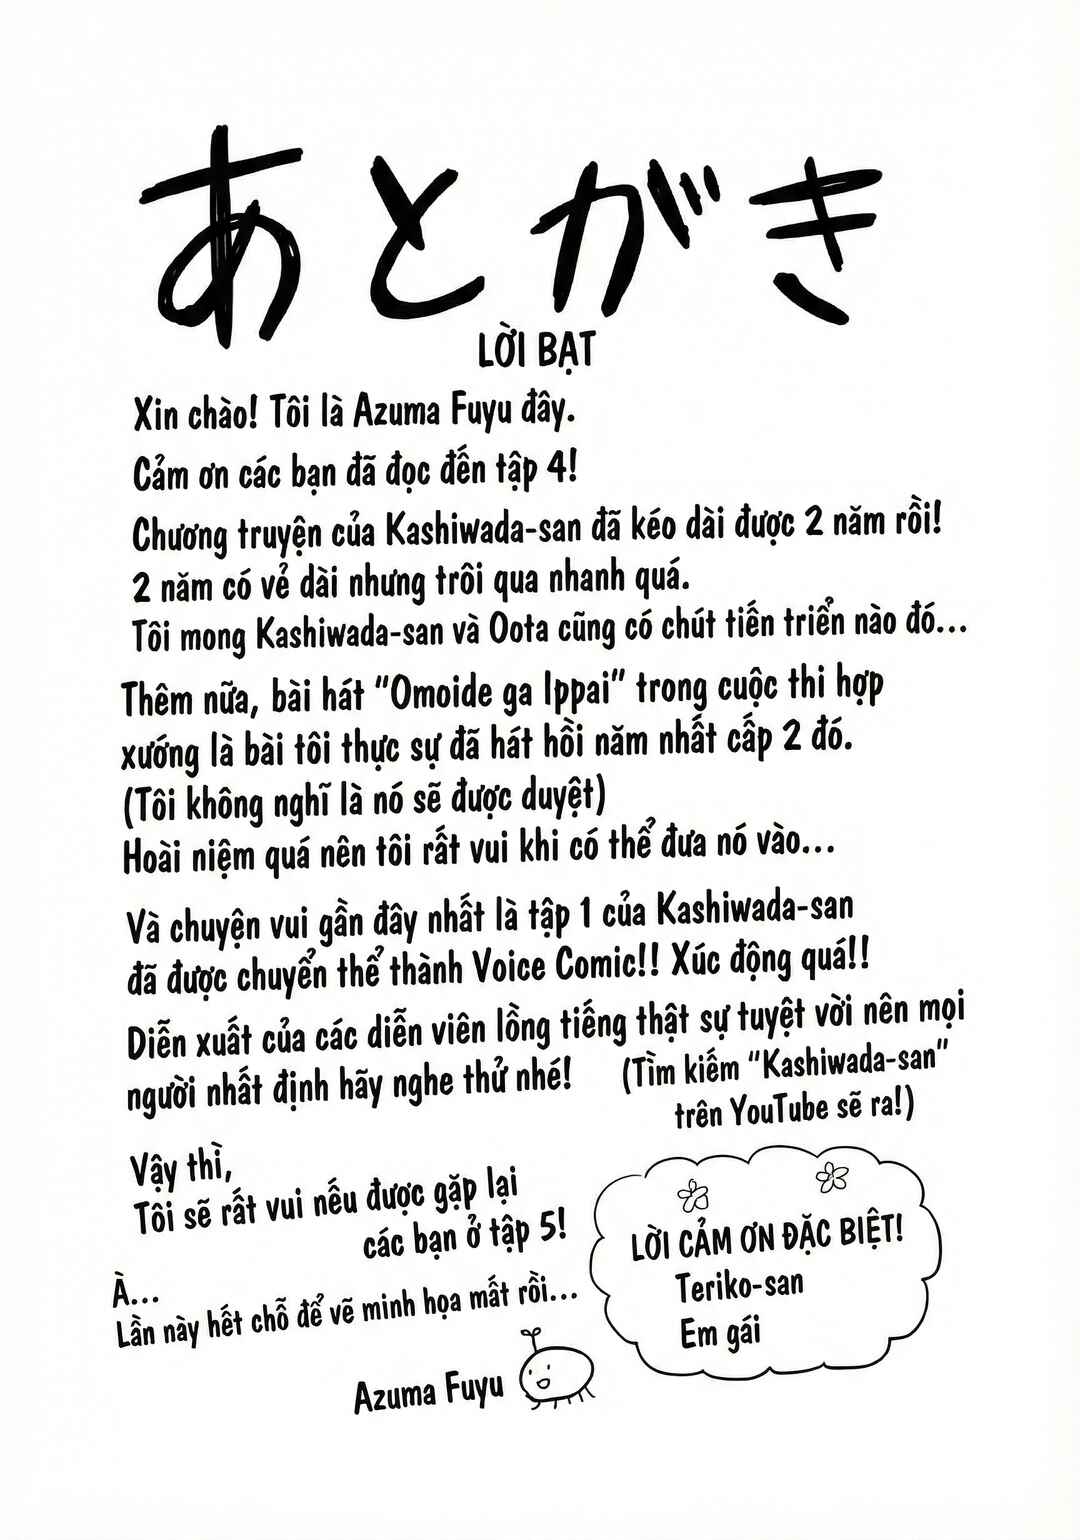 あとがき
LỜI BẠT
Xin chào! Tôi là Azuma Fuyu đây.
Cảm ơn các bạn đã đọc đến tập 4!
Chương truyện của Kashiwada-san đã kéo dài được 2 năm rồi!
2 năm có vẻ dài nhưng trôi qua nhanh quá.
Tôi mong Kashiwada-san và Oota cũng có chút tiến triển nào đó...
Thêm nữa, bài hát “Omoide ga Ippai” trong cuộc thi hợp
xướng là bài tôi thực sự đã hát hồi năm nhất cấp 2 đó.
(Tôi không nghĩ là nó sẽ được duyệt)
Hoài niệm quá nên tôi rất vui khi có thể đưa nó vào...
Và chuyện vui gần đây nhất là tập 1 của Kashiwada-san
đã được chuyển thể thành Voice Comic!! Xúc động quá!!
Diễn xuất của các diễn viên lồng tiếng thật sự tuyệt vời nên mọi
người nhất định hãy nghe thử nhé!
(Tìm kiếm “Kashiwada-san”
trên YouTube sẽ ra!)
Vậy thì,
Tôi sẽ rất vui nếu được gặp lại
các bạn ở tập 5!
À...
Lần này hết chỗ để vẽ minh họa mất rồi...
Azuma Fuyu
LỜI CẢM ƠN ĐẶC BIỆT!
Teriko-san
Em gái